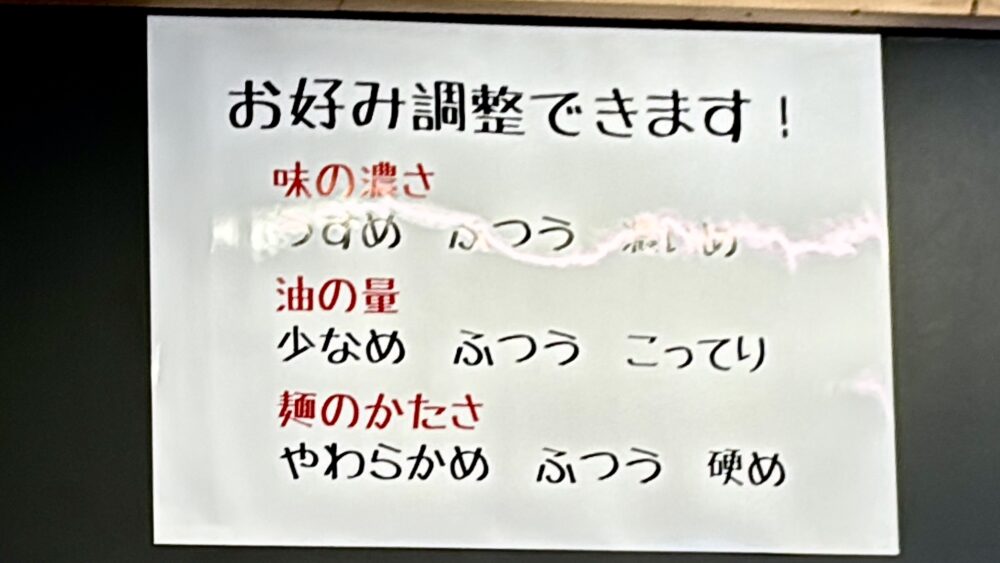 お好み調整できます！
味の濃さ
うすめ ふつう 濃いめ
油の量
少なめ ふつう こってり
麺のかたさ
やわらかめ ふつう 硬め